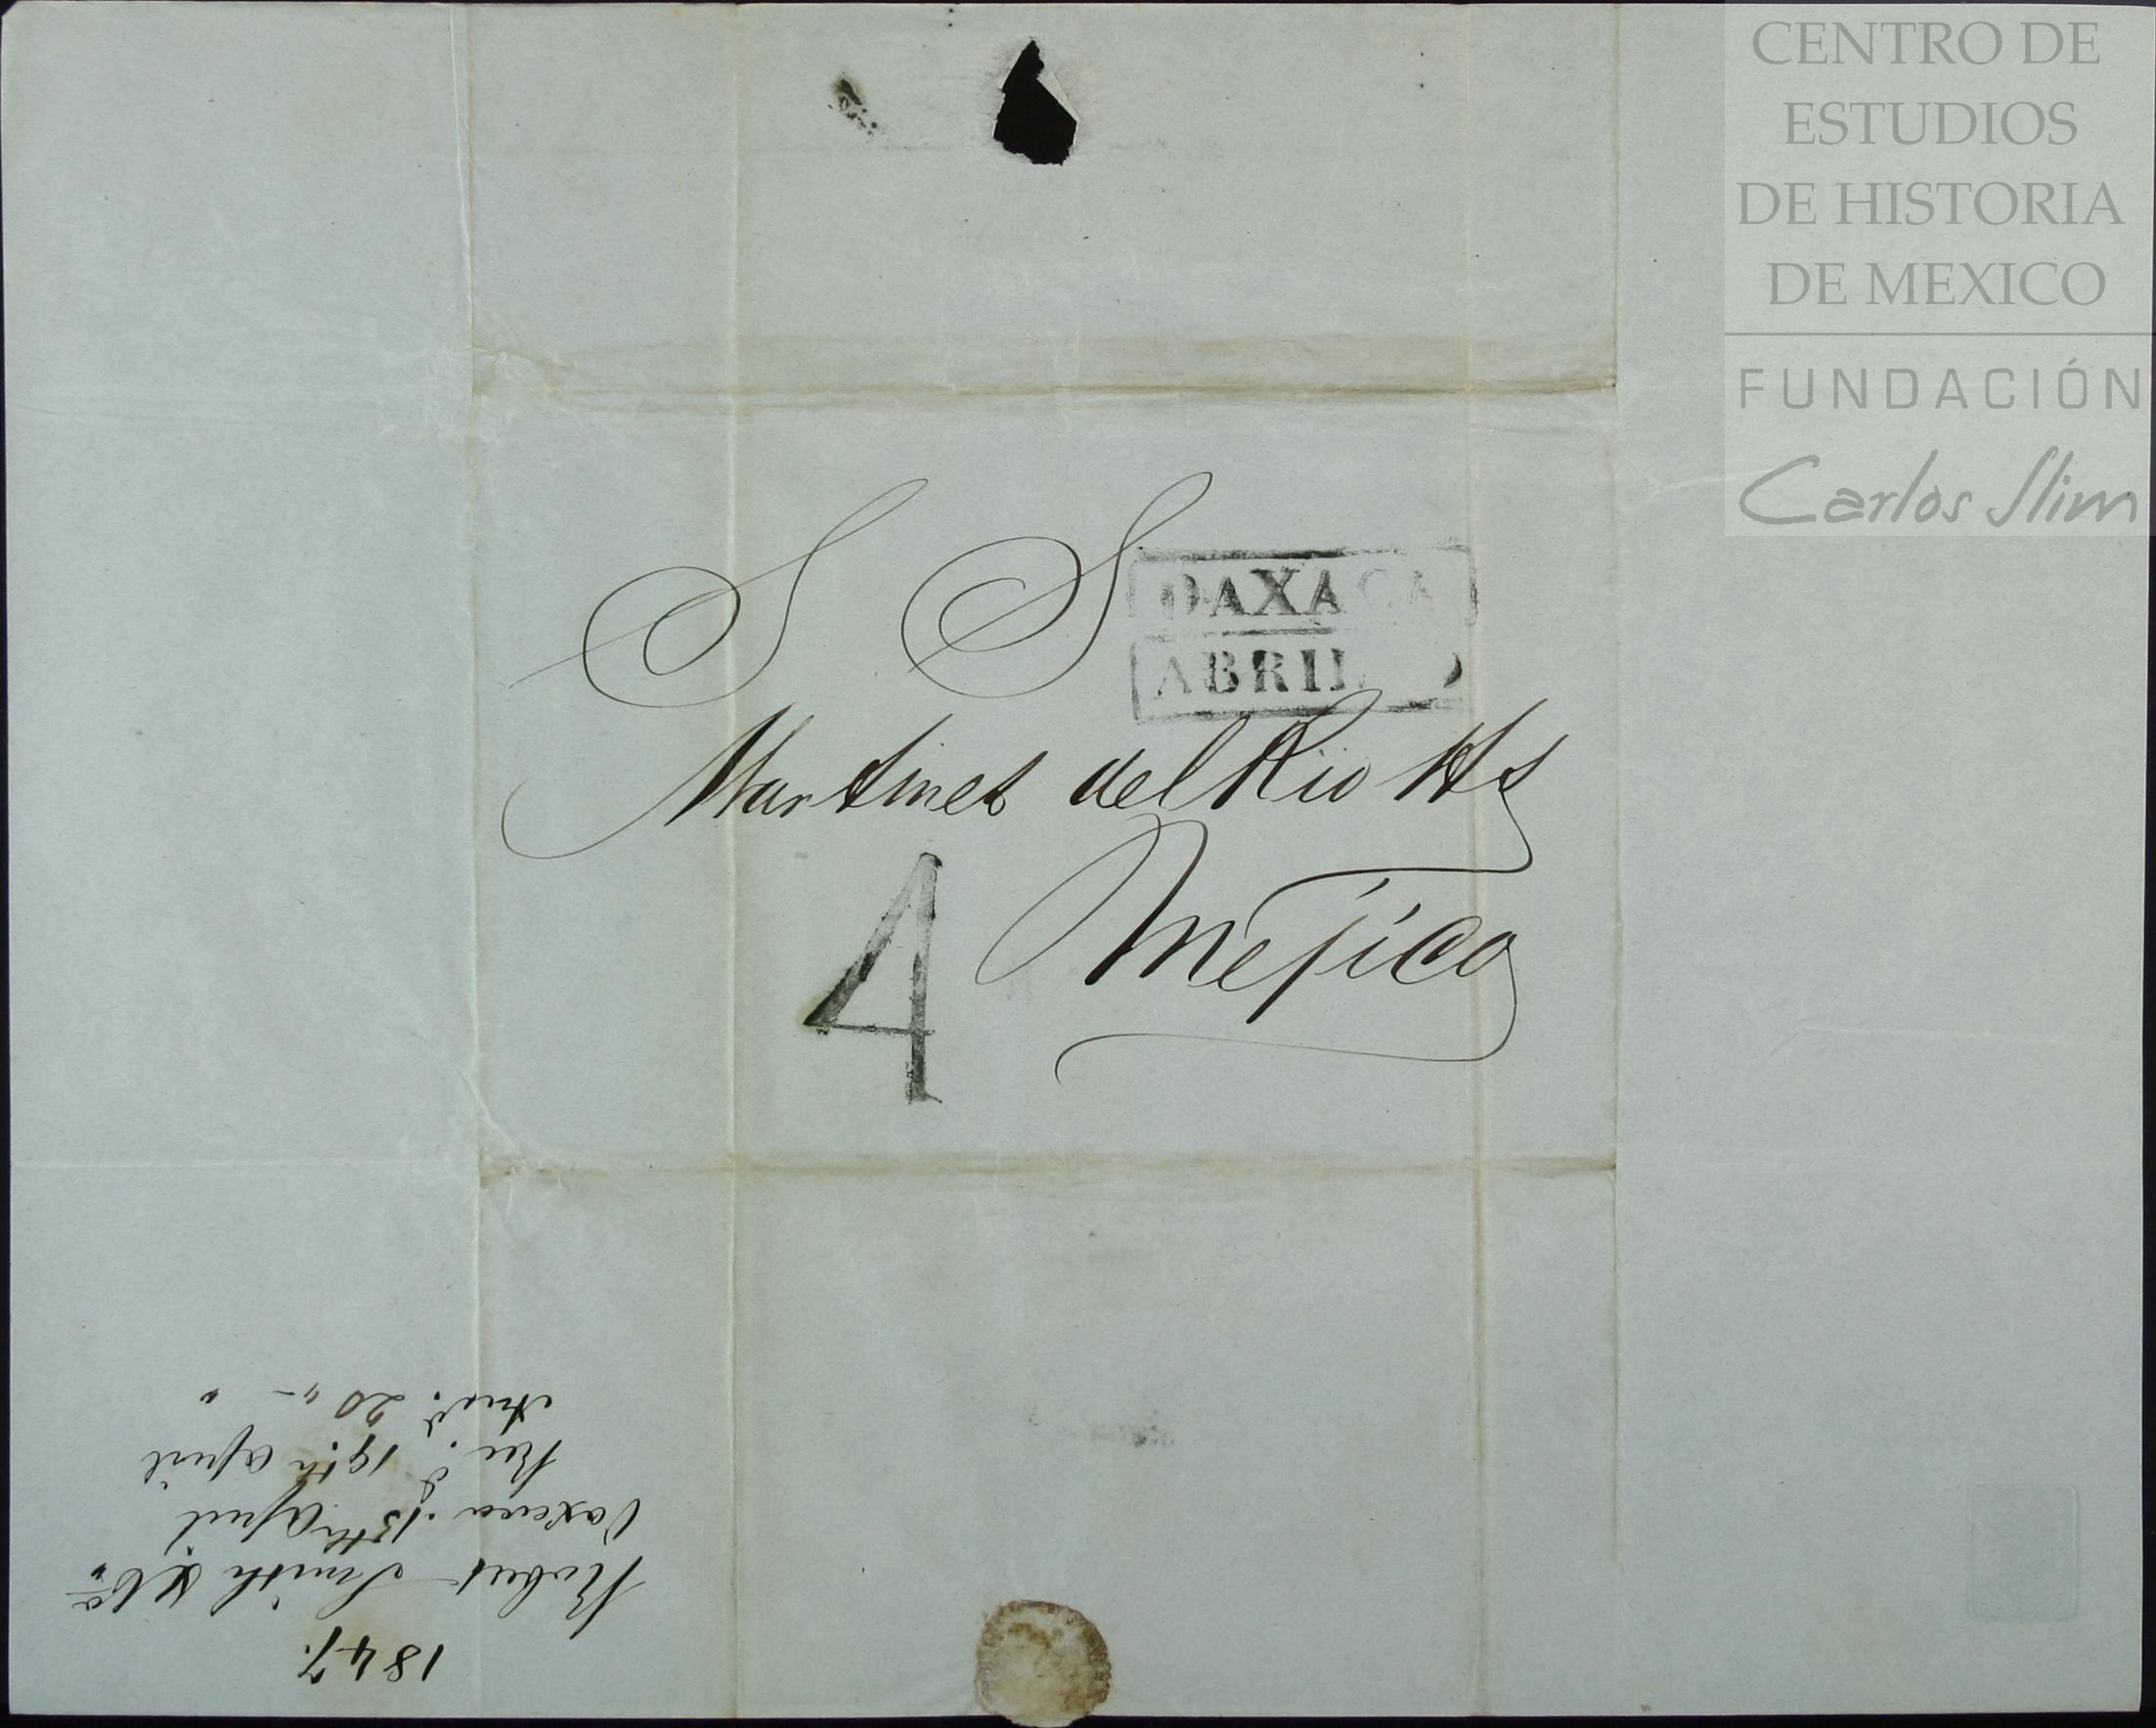 CENTRO DE
ESTUDIOS
DE HISTORIA
DE MEXICO
FUNDACIÓN
Carlos Slim
S S
OAXACA
ABRIL
Martinez del Rio Hs
Mejico
4
1847.
Robert Smith & Co.
Oaxaca 13th April
Rec.d 19th April
Ans.d 20 " - "